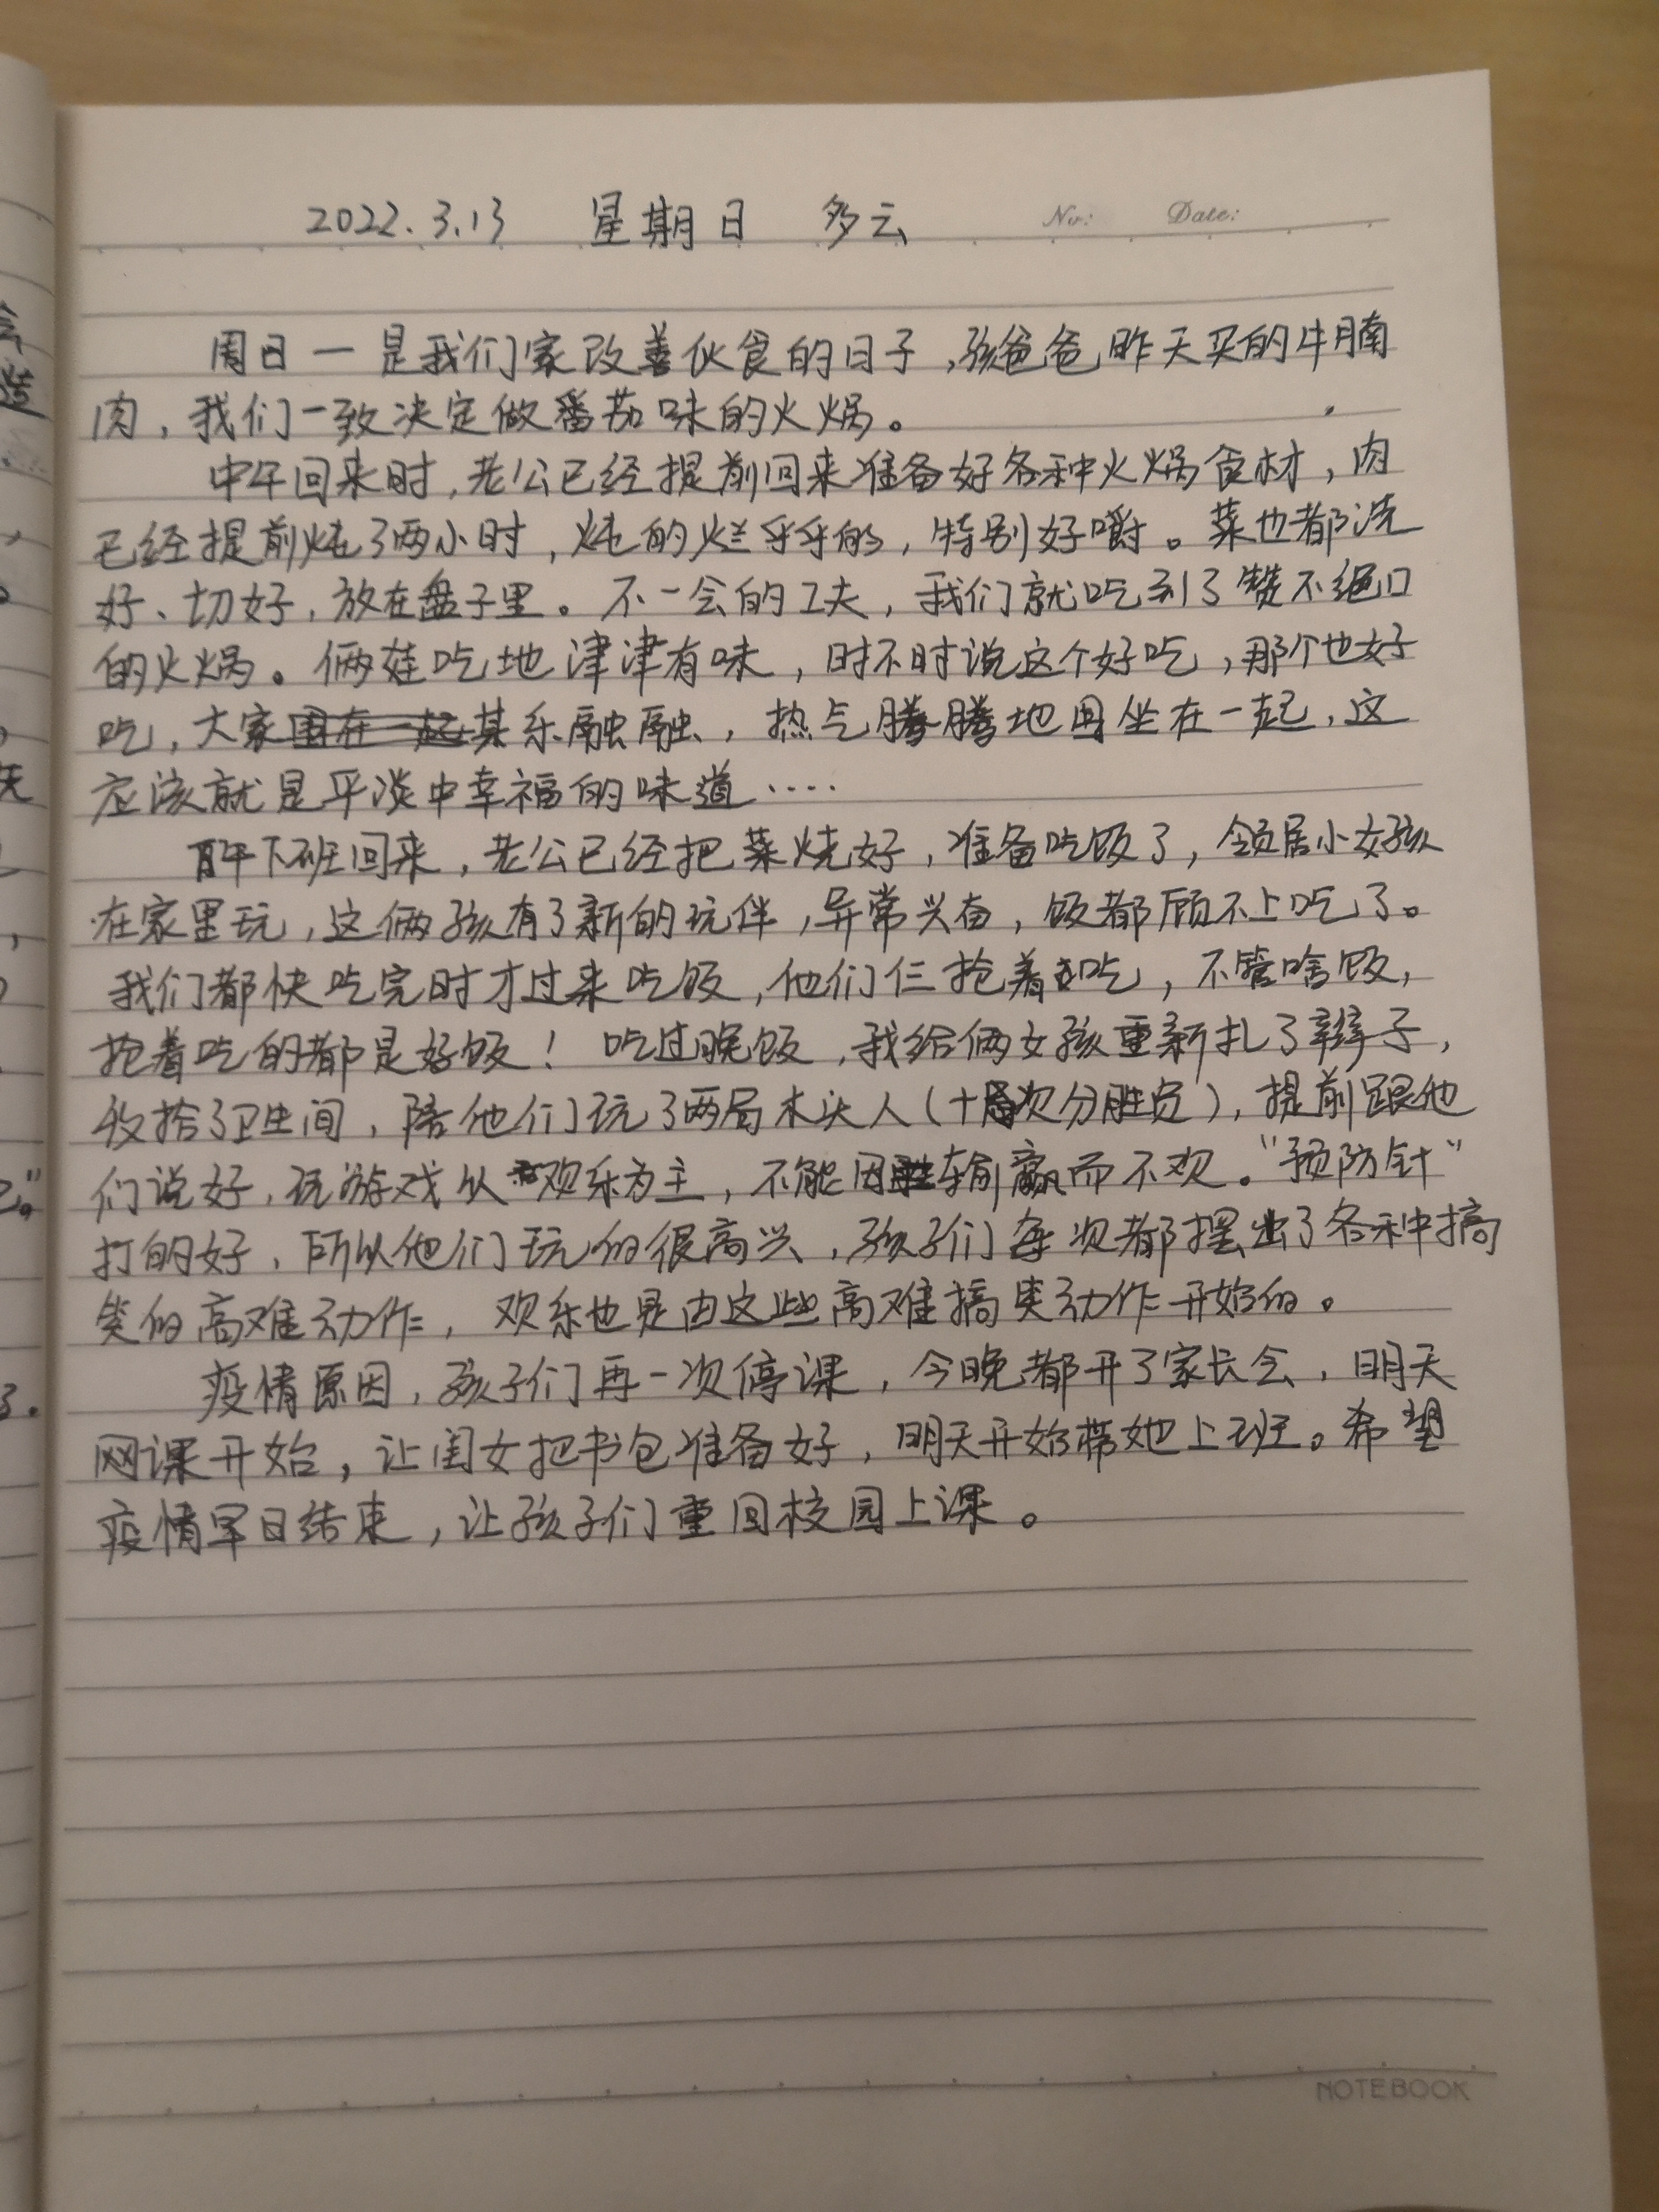 2022.3.13 星期日 多云 No: Date:
周日一是我们家改善伙食的日子,孩爸爸昨天买的牛腩
肉,我们一致决定做番茄味的火锅。
中午回来时,老公已经提前回来准备好各种火锅食材,肉
已经提前炖了两小时,炖的烂乎乎的,特别好嚼。菜也都洗
好、切好,放在盘子里。不一会的工夫,我们就吃到了赞不绝口
的火锅。俩娃吃地津津有味,时不时说这个好吃,那个也好
吃,大家其乐融融,热气腾腾地围坐在一起,这
应该就是平淡中幸福的味道····
下班回来,老公已经把菜烧好,准备吃饭了,邻居小女孩
在家里玩,这俩孩有了新的玩伴,异常兴奋,饭都顾不上吃了。
我们都快吃完时才过来吃饭,他们仨抢着吃,不管啥饭,
抢着吃的都是好饭!吃过晚饭,我给俩女孩重新扎了辫子,
收拾了卫生间,陪他们玩了两局木头人(十次分胜负),提前跟他
们说好,玩游戏以欢乐为主,不能因输赢而不欢。“预防针”
打的好,所以他们玩的很高兴,孩子们每次都摆出了各种搞
笑的高难动作,欢乐也是由这些高难搞笑动作开始的。
疫情原因,孩子们再一次停课,今晚都开了家长会,明天
网课开始,让闺女把书包准备好,明天开始带她上班。希望
疫情早日结束,让孩子们重回校园上课。
NOTEBOOK